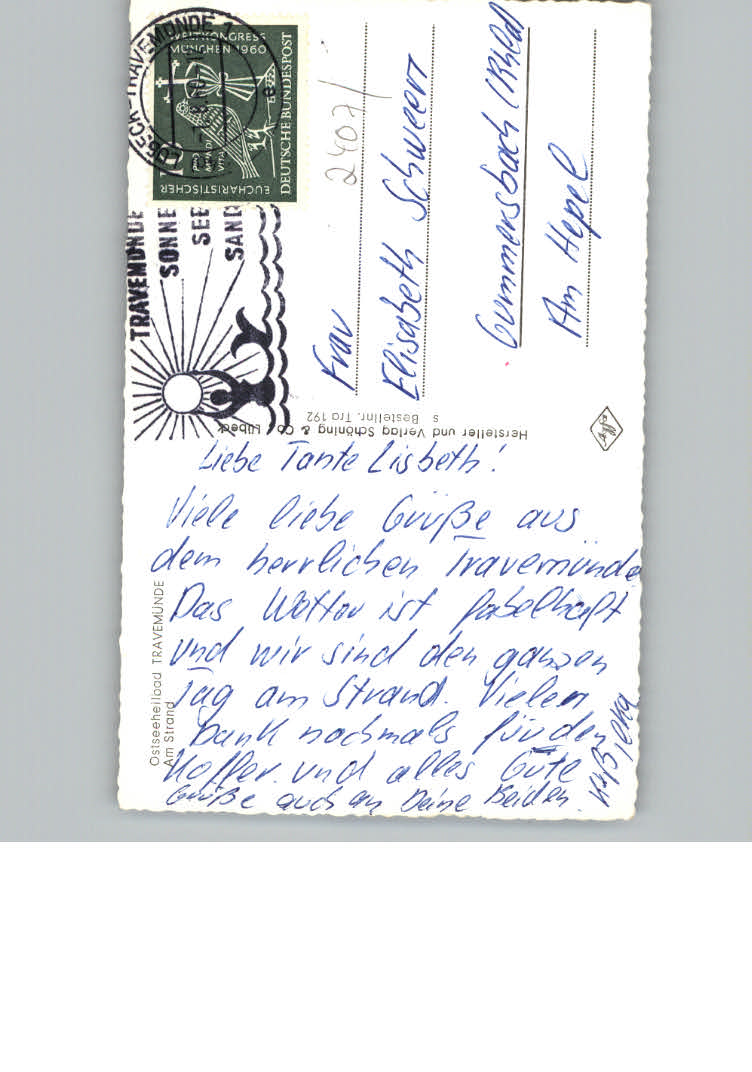 LÜBECK-TRAVEMÜNDE 1
EUCHARISTISCHER
WELTKONGRESS
MÜNCHEN 1960
PRO
MUNDI
VITA
DEUTSCHE BUNDESPOST
TRAVEMÜNDE
SONNE
SEE
SAND
2407/
Frau
Elisabeth Schweert
Gummersbach (Rhld
Am Hepel
Hersteller und Verlag Schöning & Co., Lübeck
s Bestellnr. Tra 192
Ostseeheilbad TRAVEMÜNDE
Am Strand
Liebe Tante Lisbeth!
Viele liebe Grüße aus
dem herrlichen Travemünde.
Das Wetter ist fabelhaft
und wir sind den ganzen
Tag am Strand. Vielen
Dank nochmals für den
Koffer und alles Gute
Grüße auch an Deine Beiden.